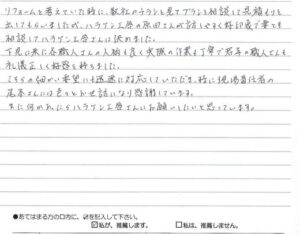 リフォームを考えていた時に、数社のチラシを見てプランを相談して見積もりを
出してもらいましたが、ハラケン工房の原田さんが話しやすく好印象で妻とも
相談してハラケン工房さんに決めました。
下見に来た各職人さんの人柄も良く実際の作業も丁寧で若手の職人さんも
礼儀正しく好感を持ちました。
こちらの細かい要望にも迅速に対応していただき、特に現場責任者の
さんには色々とお世話になり感謝しています。
また何かあればハラケン工房さんにお願いしたいと思っています。
●あてはまる方の口内に、☑を記入して下さい。
☑私が、推薦します。 □私は、推薦しません。